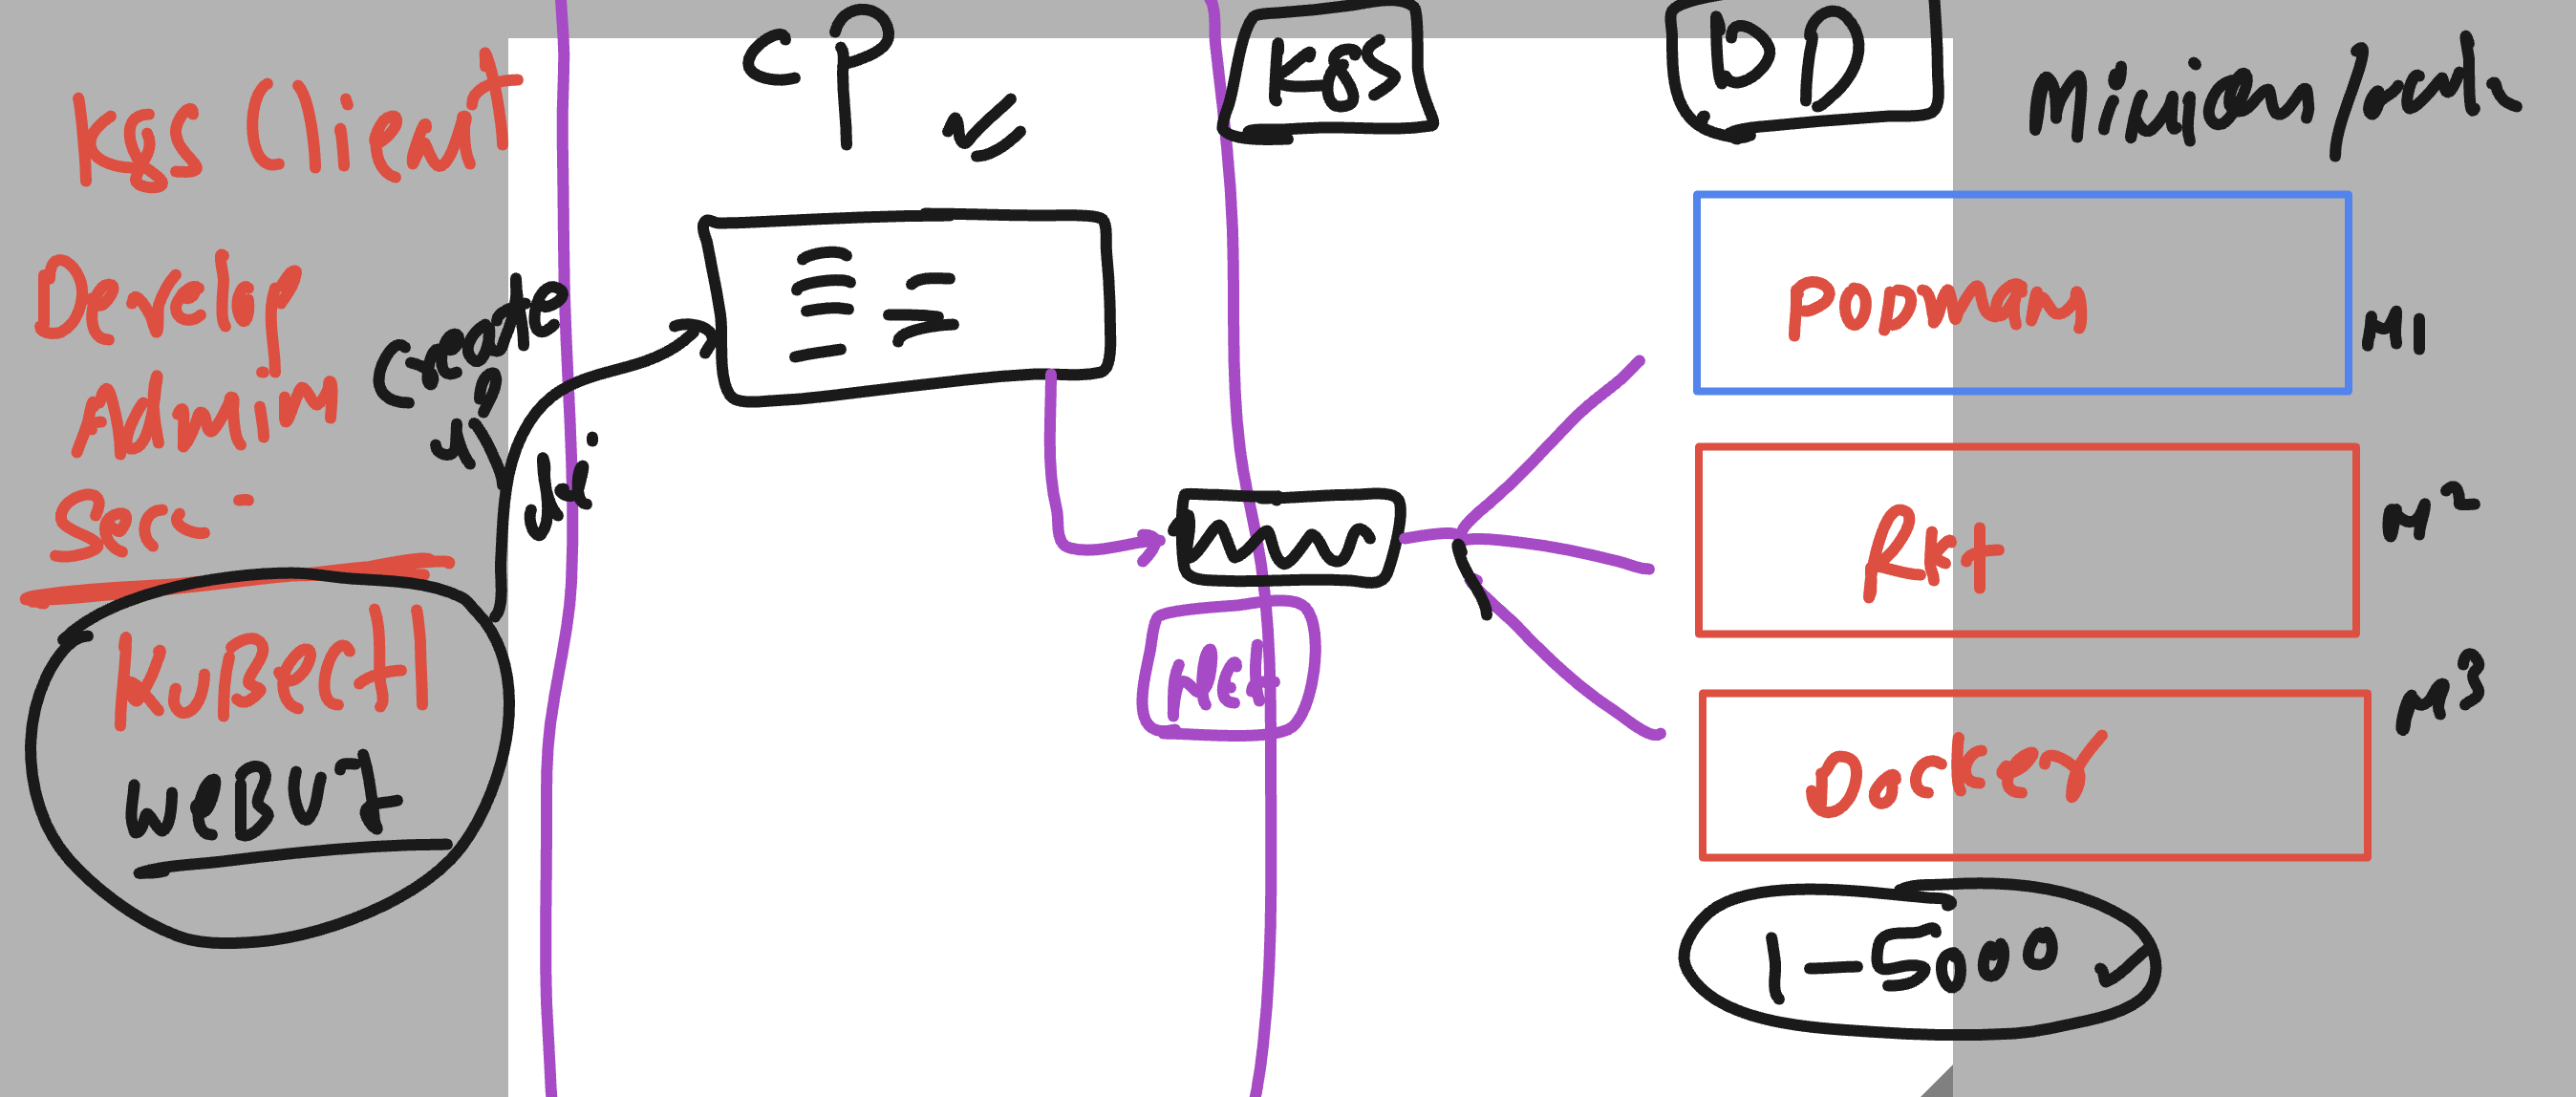 K8S Client
Develop
Admin
Sec -
KuBectl
WeBUI
Create
CP
K8S
Net
DP
Minion/node
PODman
M1
Rkt
M2
Docker
M3
1-5000